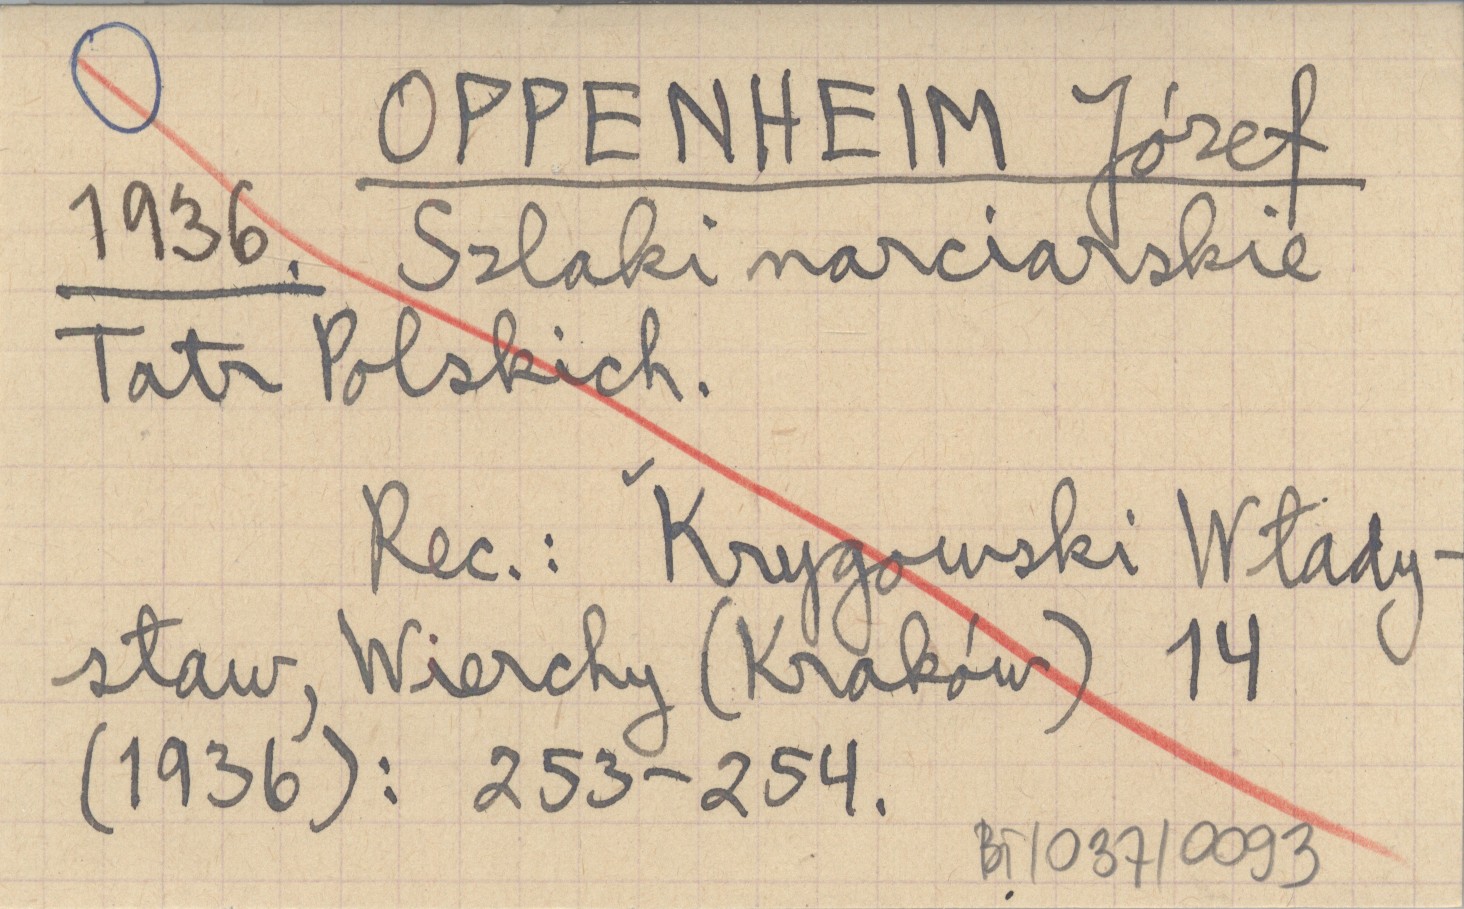 OPPENHEIM Józef
1936. Szlaki narciarskie
Tatr Polskich.
Rec.: Krygowski Włady-
sław, Wierchy (Kraków) 14
(1936): 253-254.
BT/037/0093